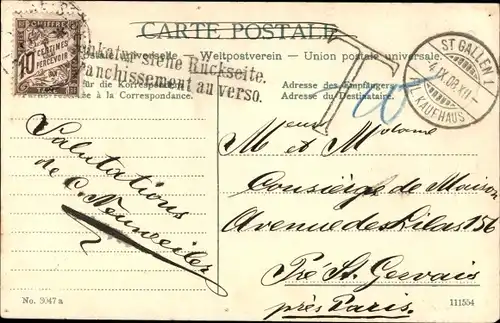 CARTE POSTALE
postale universelle — Weltpostverein — Union postale universelle.
Frankatur siehe Rückseite.
Affranchissement au verso.
für die Korrespondenz
à la Correspondance.
Adresse des Empfängers
Adresse du Destinataire.
CHIFFRE
10 CENTIMES
À PERCEVOIR
TAXE
T
10
ST GALLEN 1
4.IX.08.XII
KAUFHAUS
Salutations
de C. Neuweiler
M et Madame
Consièige de Maison
Avenue des Lilas 156
Pré St. Gervais
près Paris.
No. 3047 a
111554